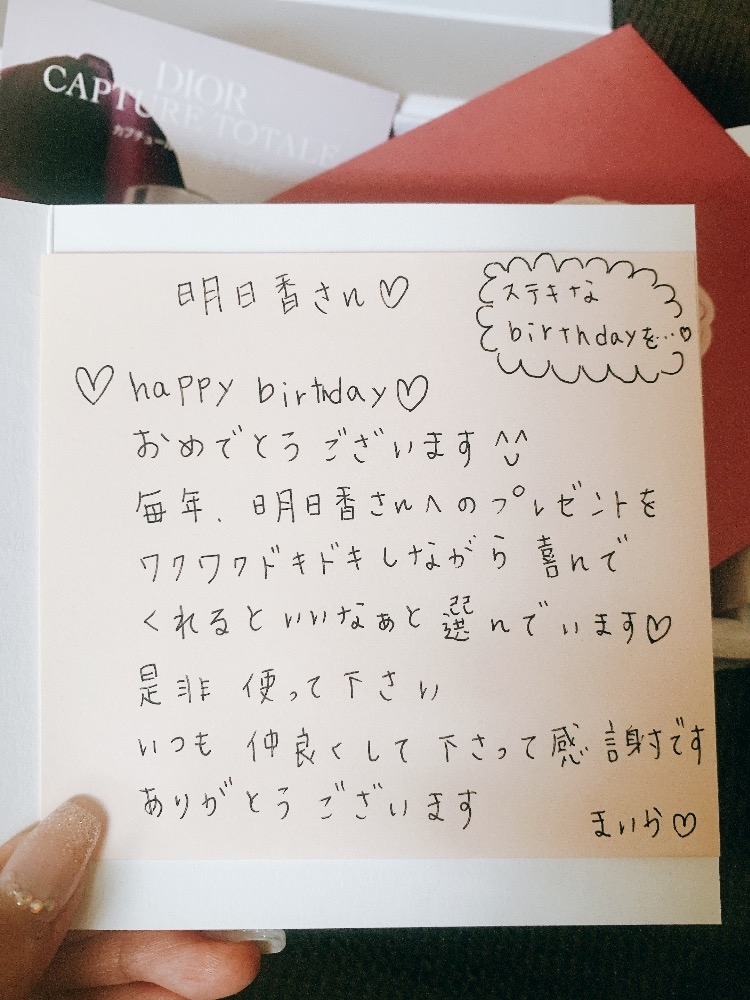 DIOR
CAPTURE TOTALE
明日香さん♡
ステキな
birthdayを…♡
♡happy birthday♡
おめでとうございます^^
毎年、明日香さんへのプレゼントを
ワクワクドキドキしながら 喜んで
くれるといいなぁと選んでいます♡
是非 使って下さい
いつも 仲良くして下さって感謝です
ありがとうございます
まいか♡